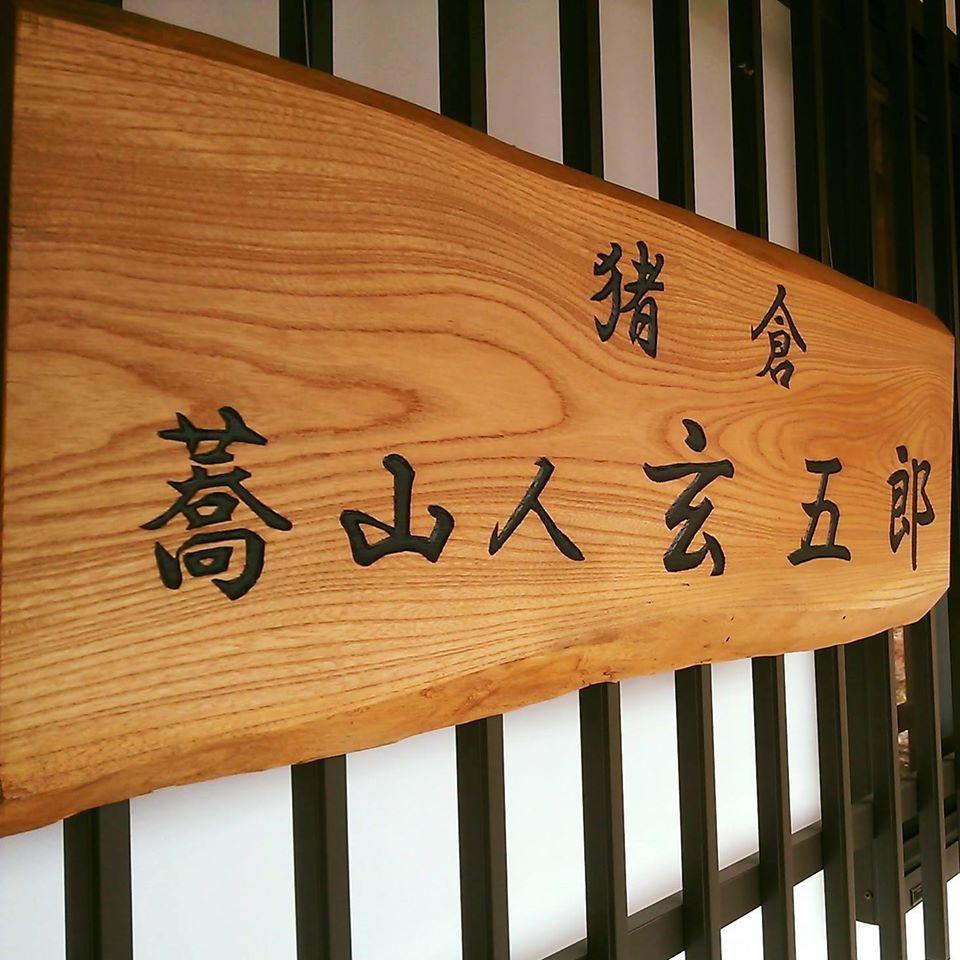 猪倉
蕎山人玄五郎